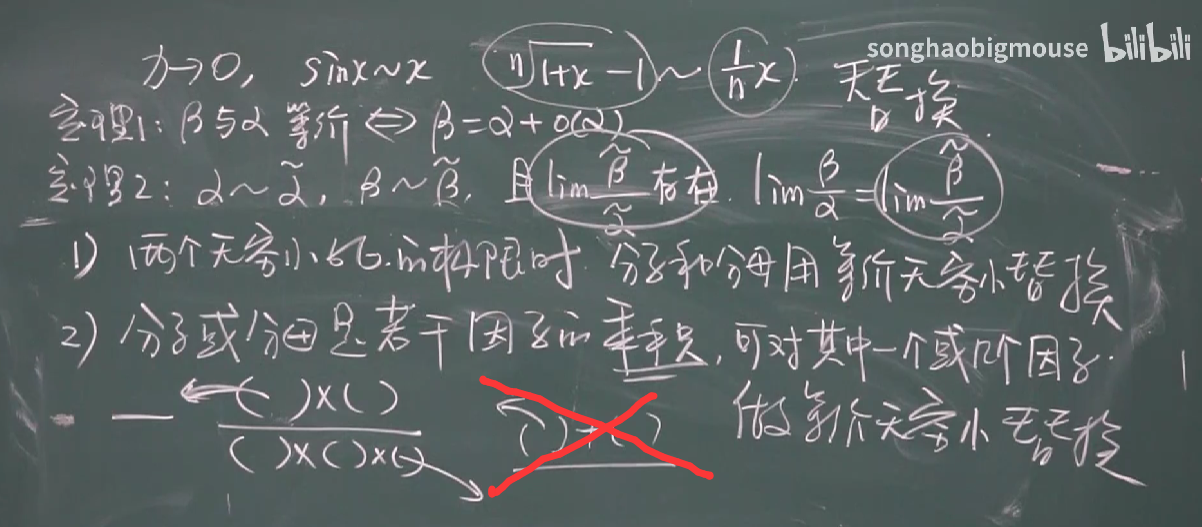 songhaobigmouse bilibili
x→0, sinx~x ⁿ√(1+x) -1 ~ 1/n x 替换
定理1: β与α等价 ⇔ β=α+o(α)
定理2: α~α̃, β~β̃, 且lim β̃/α̃ 存在. lim β/α = lim β̃/α̃
1) 两个无穷小比的极限时 分子和分母用等价无穷小替换
2) 分子或分母是若干因子的乘积, 可对其中一个或几个因子
做等价无穷小替换
( )×( ) / ( )×( )×( ) ( )+( )